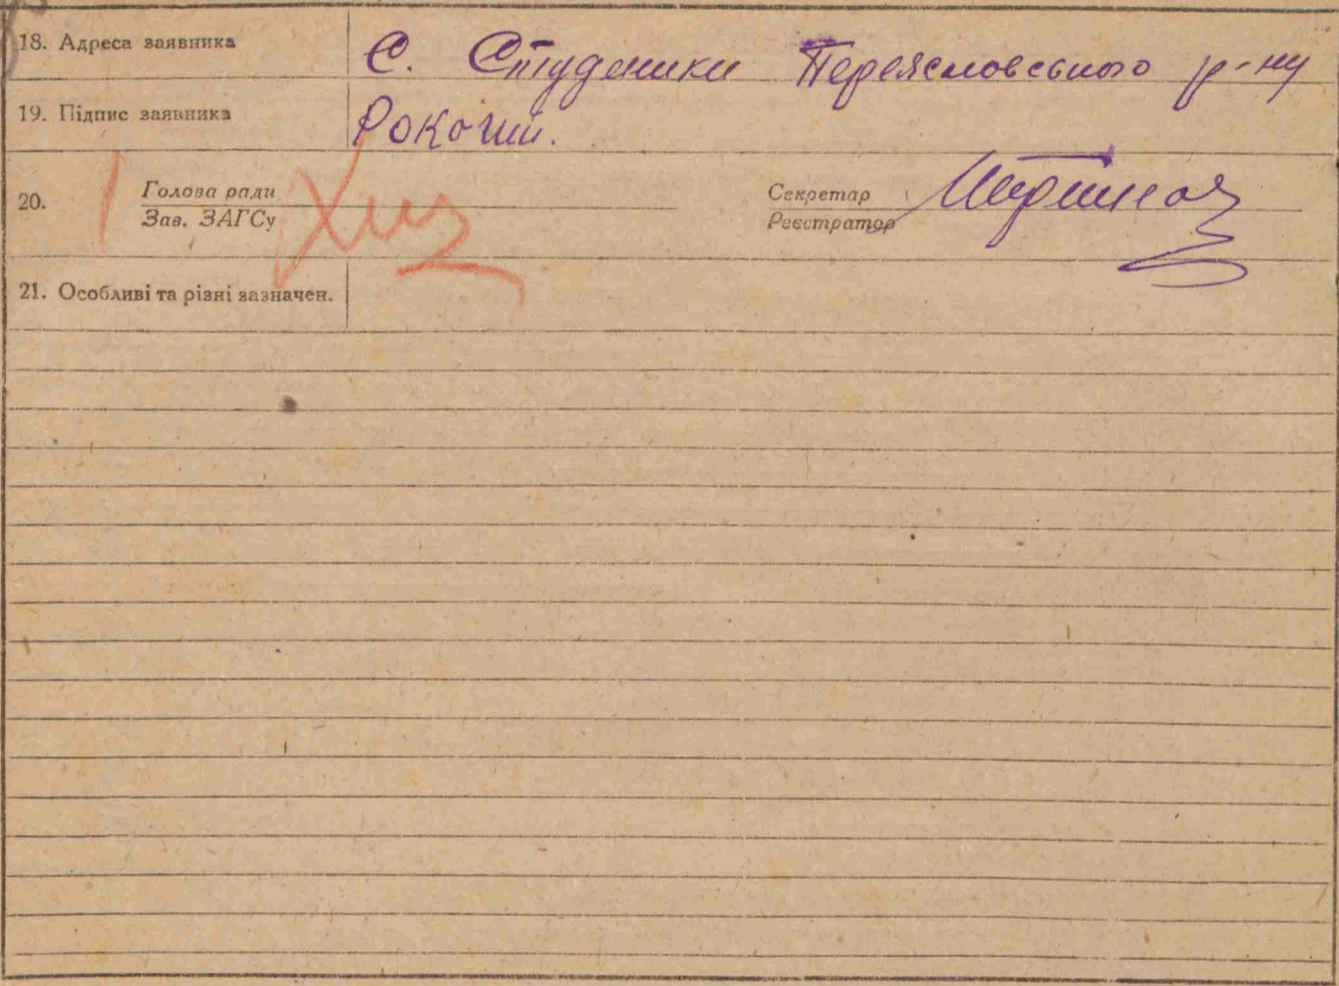 18. Адреса заявника С. Студеники Переяславського р-ну
19. Підпис заявника
20. Голова ради
Зав. ЗАГСу
Секретар
Реєстратор
21. Особливі та різні зазначен.